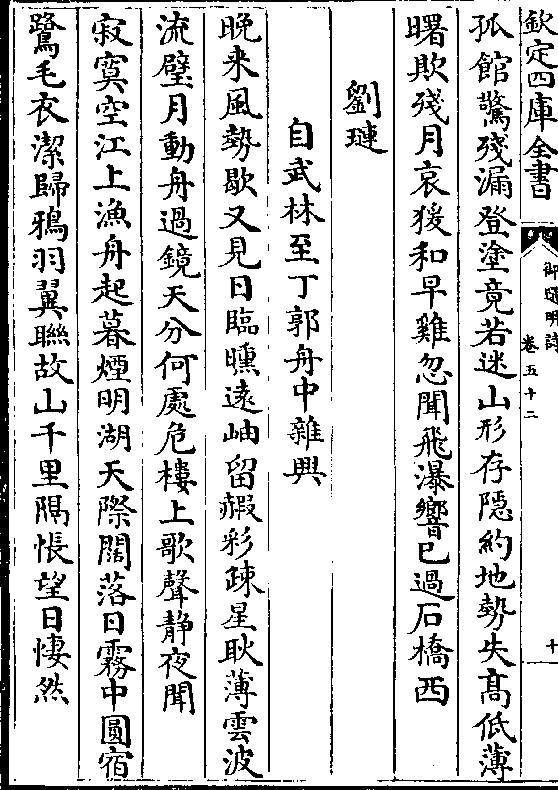 欽定四庫全書
御選明詩
卷五十二
十
孤館驚殘漏登塗竟若迷山形存隱約地勢失髙低薄
曙欺殘月哀猨和早雞忽聞飛瀑響已過石橋西
劉璉
自武林至丁郭舟中雜興
晚来風勢歇又見日臨曛遠岫留赮彩疎星耿薄雲波
流璧月動舟過鏡天分何處危樓上歌聲静夜聞
寂寞空江上漁舟起暮煙明湖天際闊落日霧中圓宿
鷺毛衣潔歸鴉羽翼聯故山千里隔悵望日悽然